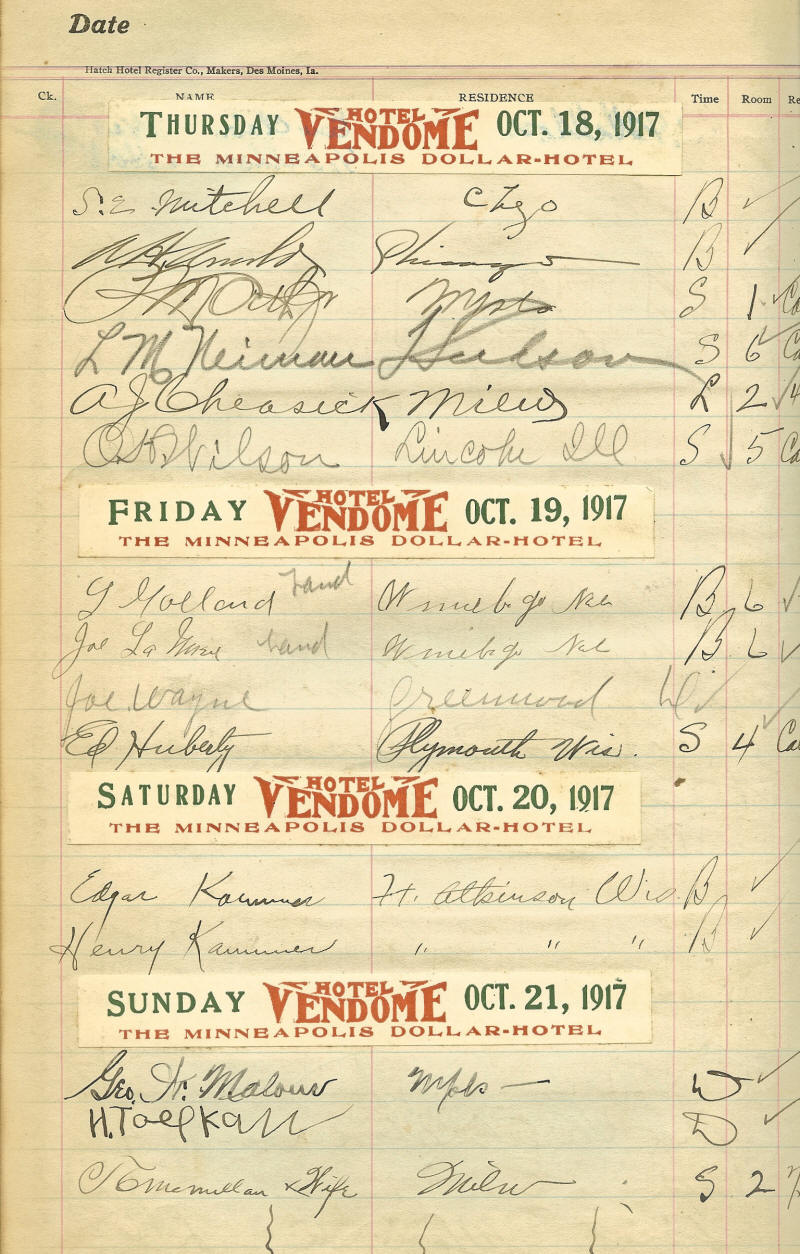 Date
Hatch Hotel Register Co., Makers, Des Moines, Ia.
Ck. NAME RESIDENCE Time Room Re
THURSDAY HOTEL VENDOME OCT. 18, 1917
THE MINNEAPOLIS DOLLAR-HOTEL
S. E. Mitchell Chgo B ✓
A H Arnold Chicago B ✓
Mpls S 1 Ca
L M Neiman Hudson S 6 Ca
A J Cheasick Milw L 2 4
O. H. Wilson Lincoln Ill S 5 Ca
FRIDAY HOTEL VENDOME OCT. 19, 1917
THE MINNEAPOLIS DOLLAR-HOTEL
Holland band Winnebago Neb B 6 ✓
Joe La band Winnebago Neb B 6 ✓
Joe. Wayne Greenwood ✓
Ed Huberty Plymouth Wis. S 4 Ca
SATURDAY HOTEL VENDOME OCT. 20, 1917
THE MINNEAPOLIS DOLLAR-HOTEL
Edgar Kammer Ft. Atkinson Wis B ✓
Henry Kammer " " " B ✓
SUNDAY HOTEL VENDOME OCT. 21, 1917
THE MINNEAPOLIS DOLLAR-HOTEL
Geo. Mpls — D ✓
H. D ✓
McMillan & Wife Milw S 2